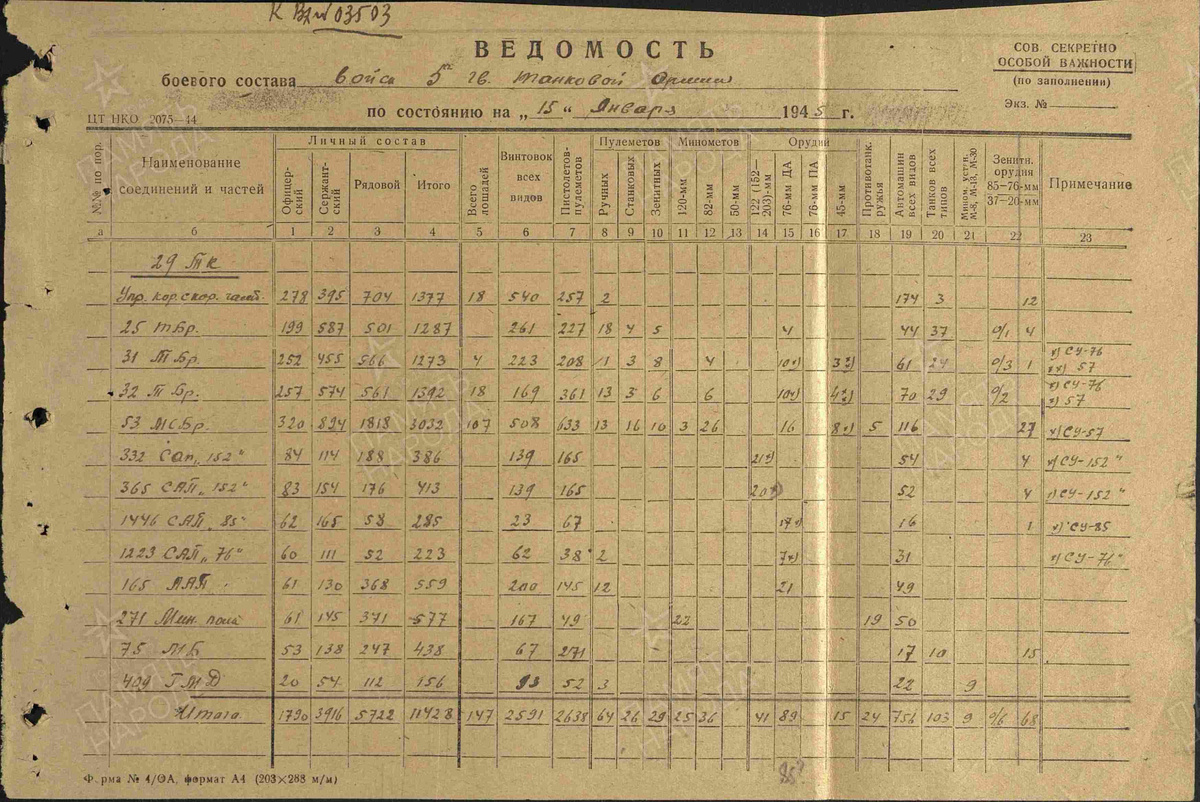 К Вх№ 03503
ВЕДОМОСТЬ
СОВ. СЕКРЕТНО
ОСОБОЙ ВАЖНОСТИ
(по заполнении)
Экз. №
боевого состава войск 5й гв. танковой Армии
по состоянию на „15" Января 1945 г.
ЦТ НКО 2075—44
№№ по пор. | Наименование соединений и частей | Личный состав | Всего лошадей | Винтовок всех видов | Пистолетов-пулеметов | Пулеметов | Минометов | Орудий | Противотанк. ружья | Автомашин всех видов | Танков всех типов | Мином. устан. М-8, М-13, М-30 | Зенитн. орудия 85-76-мм 37-20-мм | Примечание
Офицерский | Сержантский | Рядовой | Итого | Ручных | Станковых | Зенитных | 120-мм | 82-мм | 50-мм | 122 (152—203)-мм | 76-мм ДА | 76-мм ПА | 45-мм
а | б | 1 | 2 | 3 | 4 | 5 | 6 | 7 | 8 | 9 | 10 | 11 | 12 | 13 | 14 | 15 | 16 | 17 | 18 | 19 | 20 | 21 | 22 | 23
29 ТК
Упр. кор. с кор. 278 395 704 1377 18 540 257 2 174 3 12
25 тбр. 199 587 501 1287 261 227 18 4 5 4 44 37 0/1 4
31 Т Бр. 252 455 566 1273 4 223 208 11 3 8 4 10х) 3х) 61 24 0/3 1 х) СУ-76 хх) 57
32 Т Бр. 257 574 561 1392 18 169 361 13 3 6 6 10х) 4х) 70 29 0/2 х) СУ-76 х) 57
53 МСБр. 320 894 1818 3032 107 508 633 13 16 10 3 26 16 8х) 5 116 27 х) СУ-57
332 Сап „152" 84 114 188 386 139 165 21х) 54 4 х) СУ-152"
365 САП „152" 83 154 176 413 139 165 20х) 52 4 х) СУ-152"
1446 САП „85" 62 165 58 285 23 67 17х) 16 1 х) СУ-85
1223 САП „76" 60 111 52 223 62 38 2 7х) 31 х) СУ-76"
165 ЛАП 61 130 368 559 200 145 12 21 49
271 Мин. полк 61 145 371 577 167 49 22 19 50
75 МБ 53 138 247 438 67 271 17 10 15
409 ГМД 20 54 112 156 93 52 3 22 9
Итого 1790 3916 5722 11428 147 2591 2638 64 26 29 25 36 41 89 15 24 756 103 9 0/6 68
85?
Форма № 4/ОА, формат А4 (203×288 м/м)
ПАМЯТЬ НАРОДА